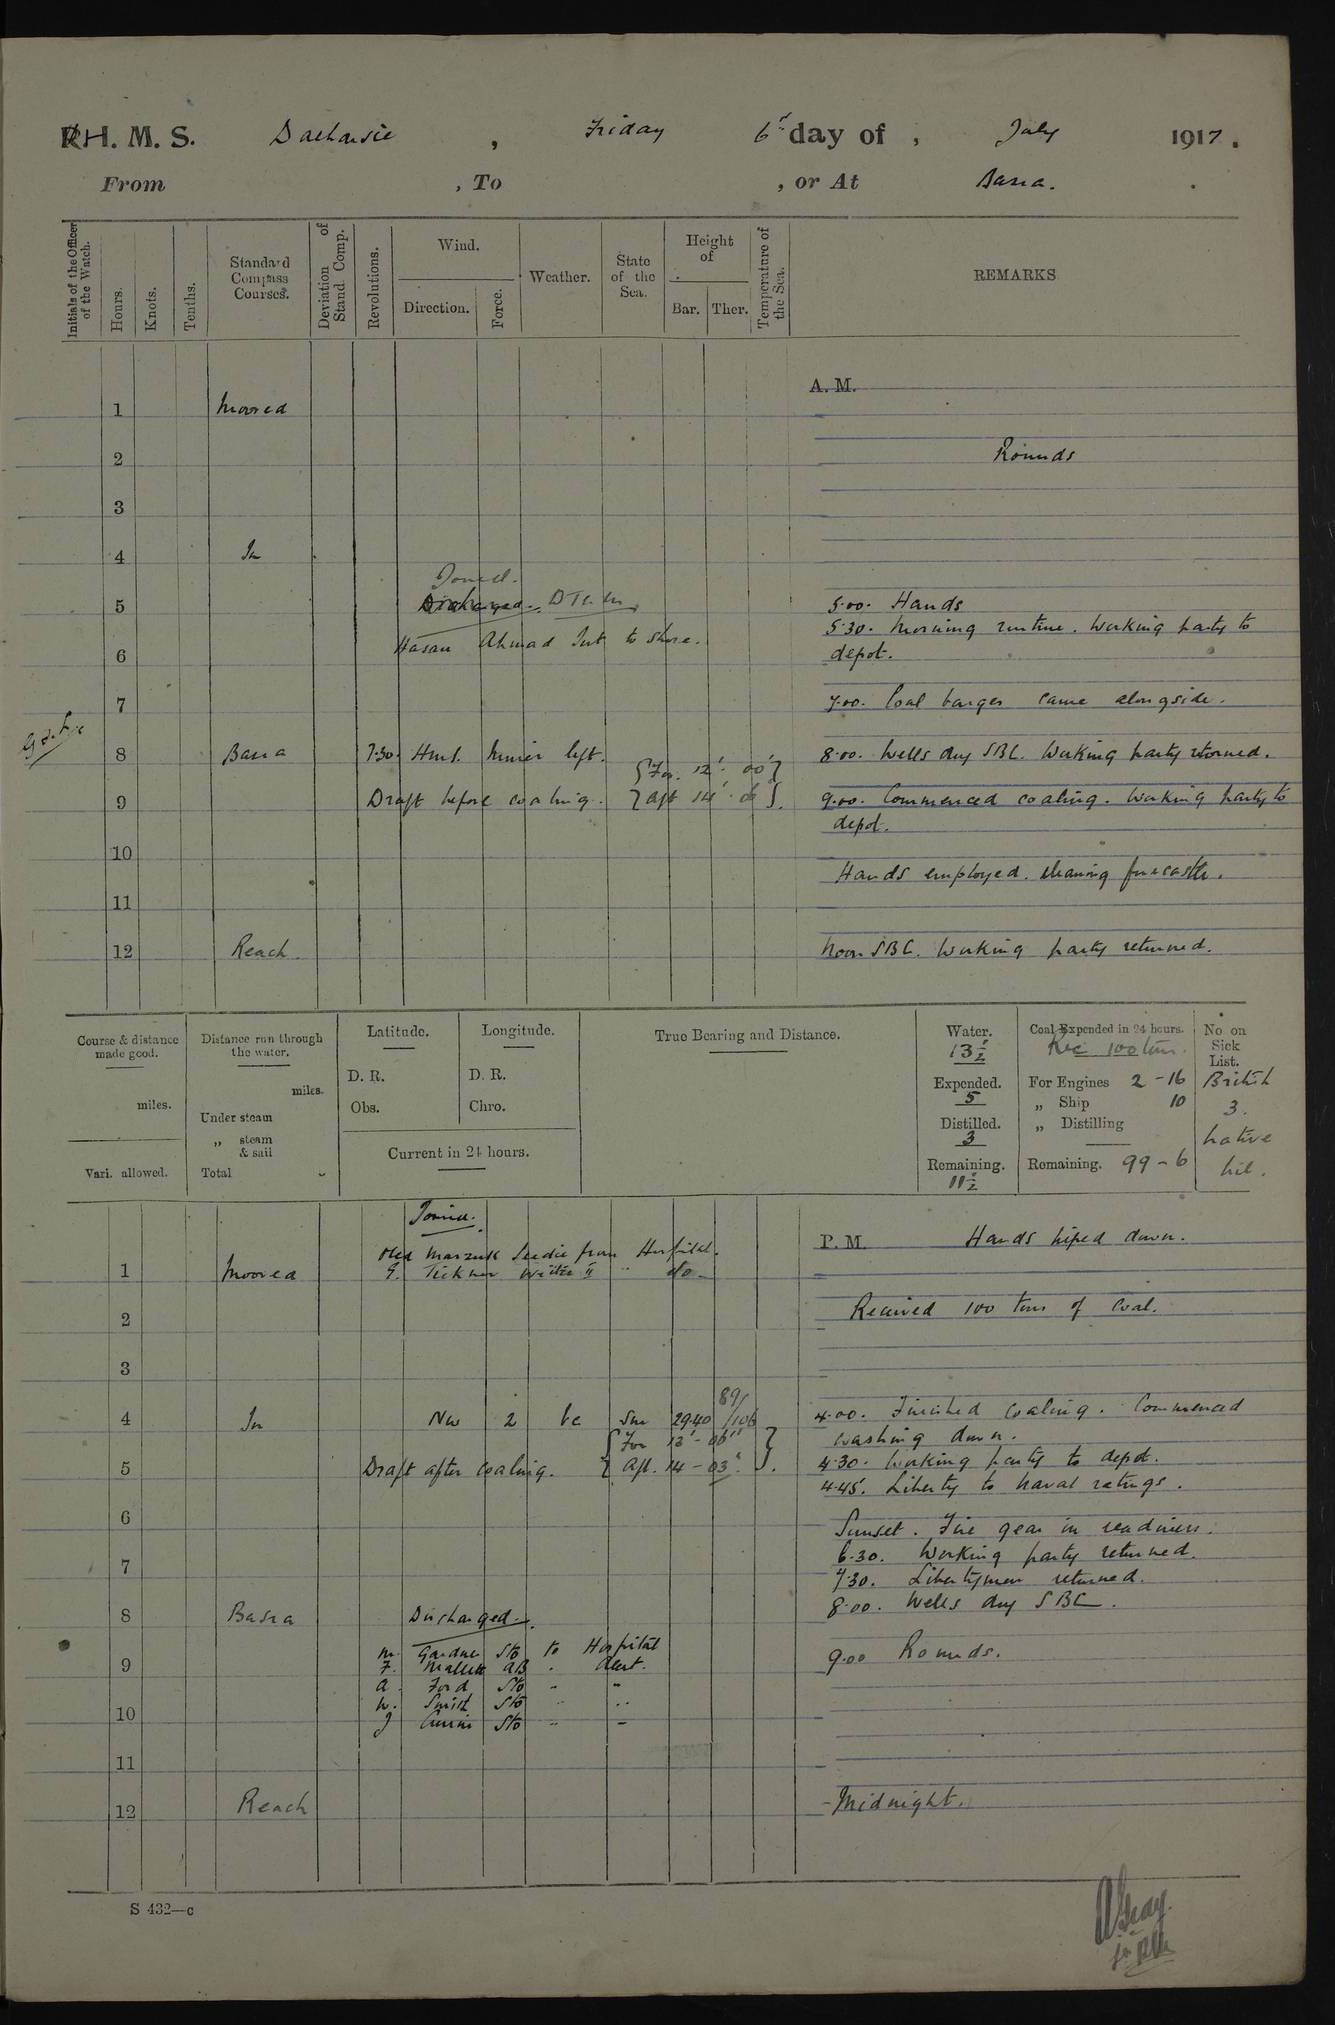 H. M. S. Dalhousie, Friday 6th day of, July 1917.
From , To , or At Basra.
Initials of the Officer of the Watch.
Hours.
Knots.
Tenths.
Standard Compass Courses.
Deviation of Stand. Comp.
Revolutions.
Wind.
Direction.
Force.
Weather.
State of the Sea.
Height of
Bar. Ther.
Temperature of the Sea.
REMARKS
A. M.
1 Moored
2 Rounds
3
4 In
Joined.
5 Discharged 5.00. Hands
5.30. Morning routine. Working party to
Hasan Ahmad Int to shore.
6 depot.
7 7.00. Coal barges came alongside.
8 Basra 7.30. HmS. left. 8.00. Wells dry SBC. Working party returned.
{For. 12'. 00"}
9 Draft before coaling. {Aft 14'. 6"}. 9.00. Commenced coaling. Working party to
depot.
10
Hands employed cleaning forecastle.
11
12 Reach. Noon SBC. Working party returned.
Course & distance made good.
miles.
Vari. allowed.
Distance run through the water.
miles.
Under steam
„ steam & sail
Total
Latitude.
D. R.
Obs.
Longitude.
D. R.
Chro.
Current in 24 hours.
True Bearing and Distance.
Water.
13½
Expended.
5
Distilled.
3
Remaining.
11½
Coal Expended in 24 hours.
Rec 100 tons.
For Engines 2-16
„ Ship 10
„ Distilling
Remaining. 99-6
No on Sick List.
British
3.
Native
Nil.
Joined.
P. M. Hands piped down.
Marzuk Seedie from Hospital.
1 Moored G. Tickner Writer do-
Received 100 tons of Coal.
2
3
89/
4 In NW 2 bc Sm 29.40 /106 4.00. Finished Coaling. Commenced
{For 13'-06"} washing down.
5 Draft after Coaling. {Aft. 14-03"}. 4.30. Working party to depot.
4.45. Liberty to Naval ratings.
6 Sunset. Fire gear in readiness.
6.30. Working party returned.
7 7.30. Libertymen returned.
8 Basra Discharged 8.00. Wells dry SBC.
M. Gardner Sto to Hospital 9.00 Rounds.
9 F. Mallett AB " Alert.
A. Ford Sto " "
W. Sto " "
10 J Sto " "
11
12 Reach Midnight.
S 432—c